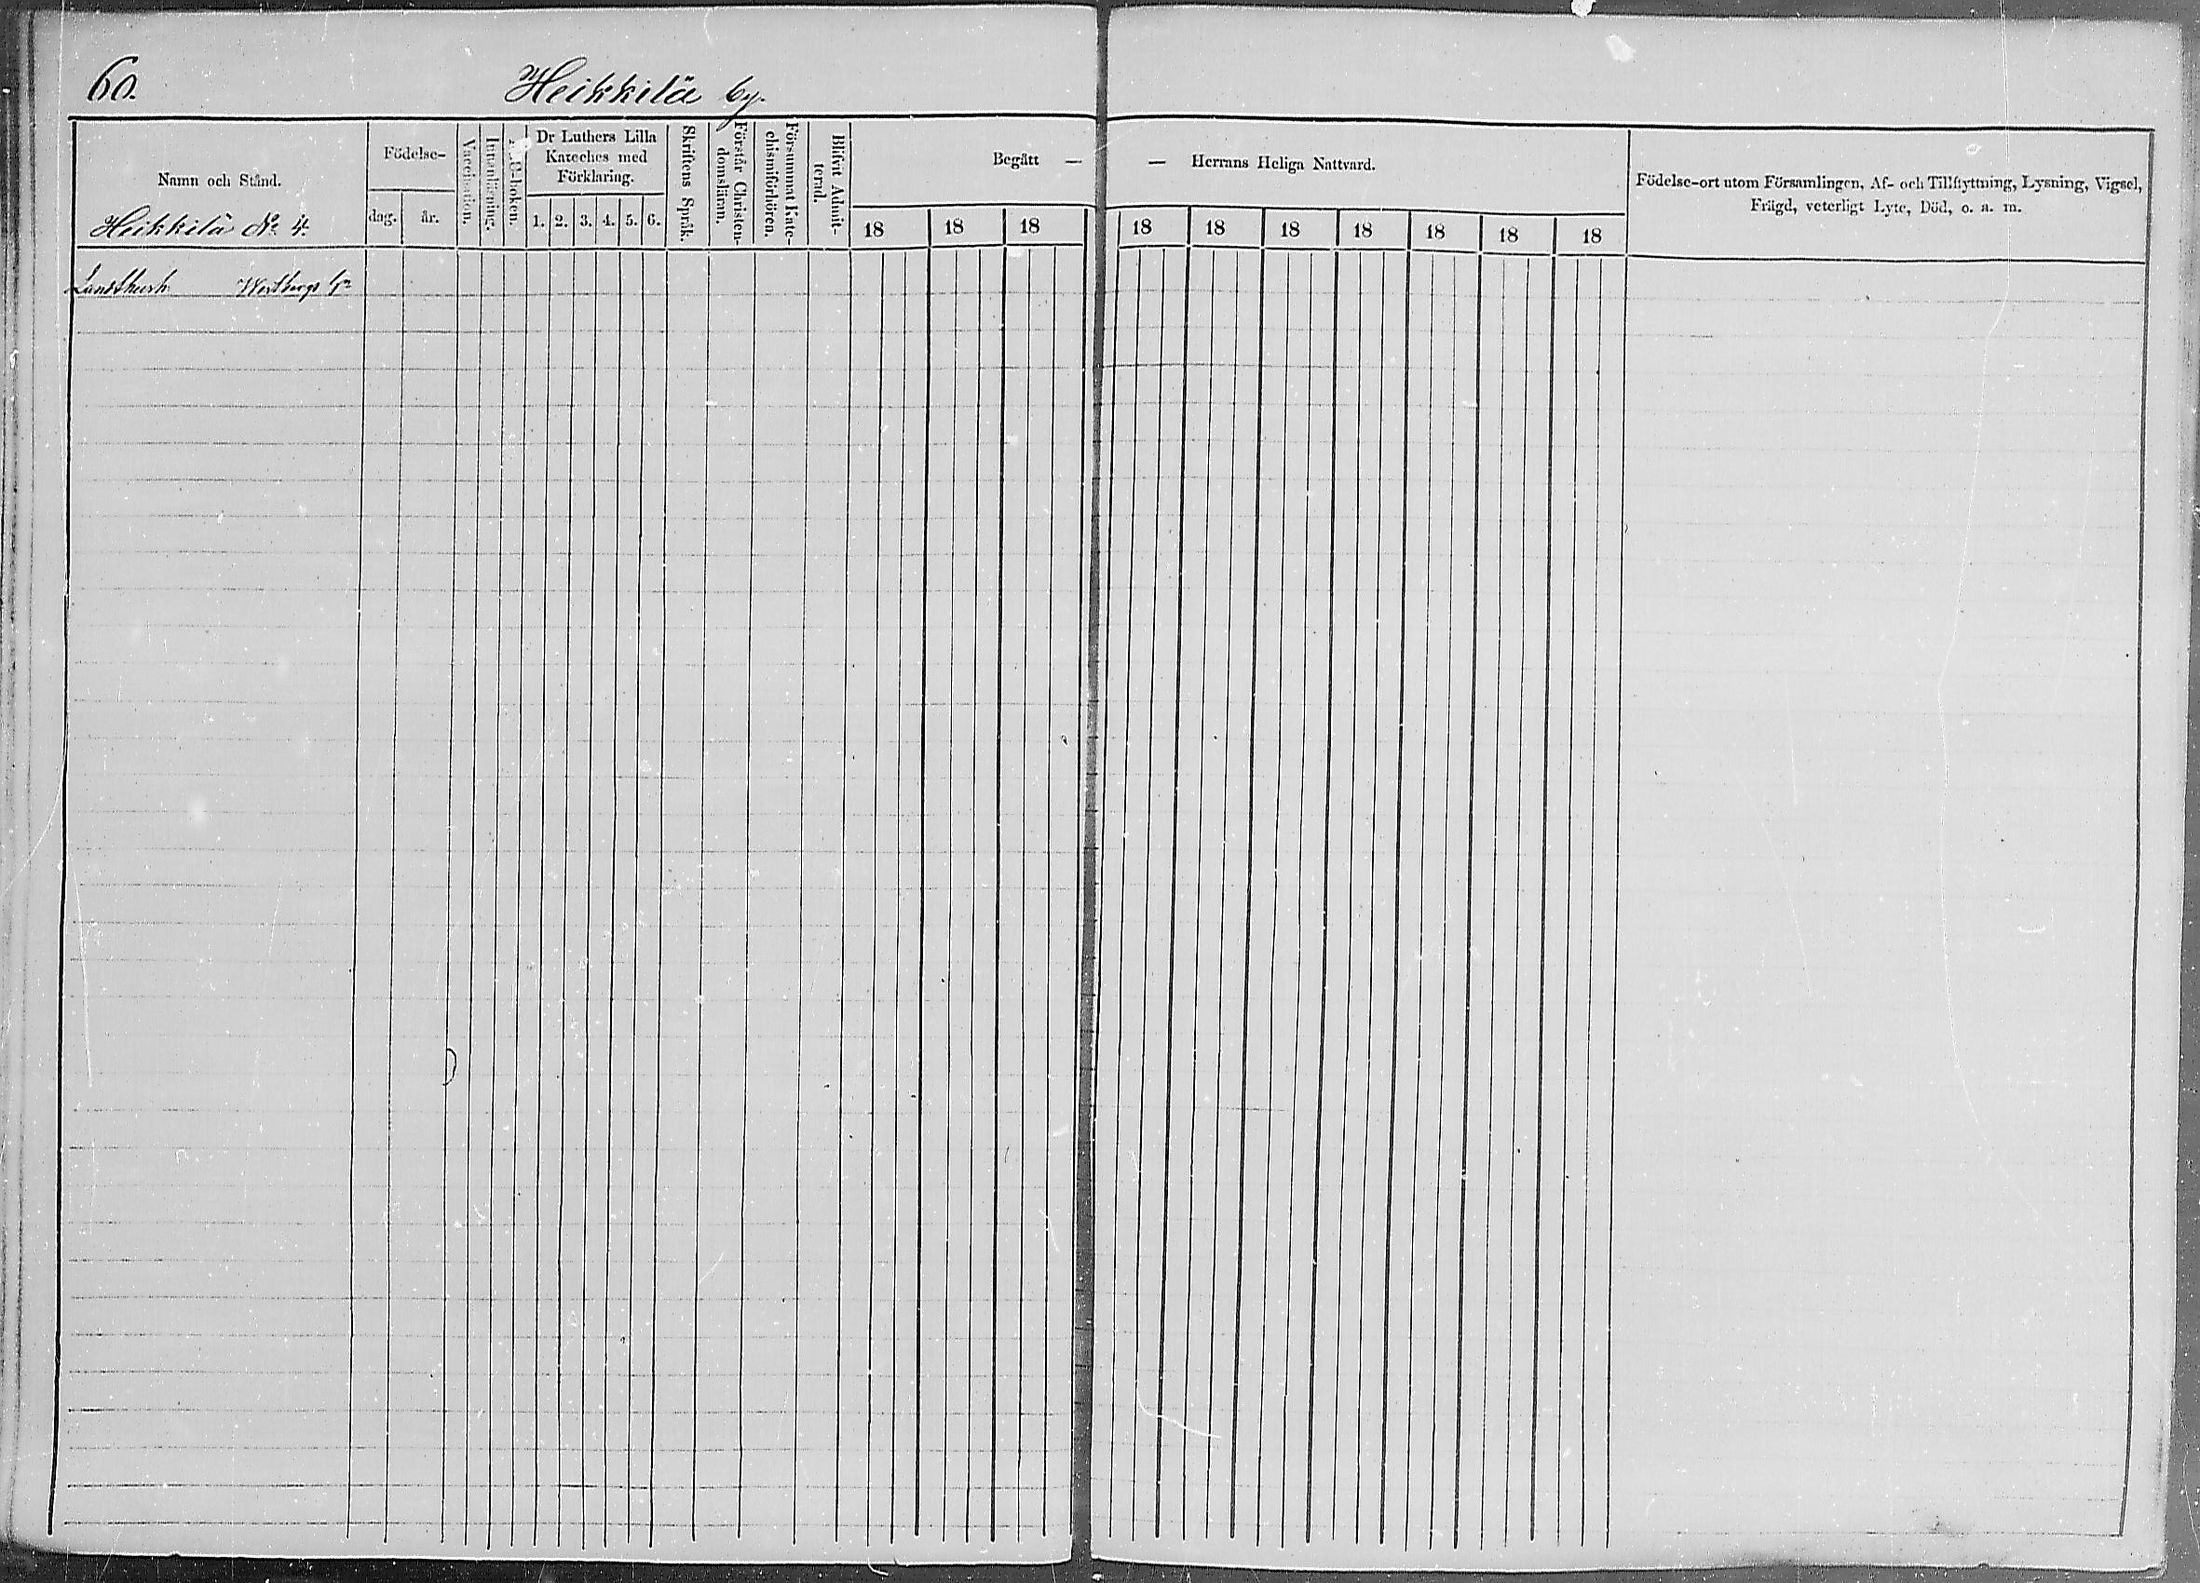 60.
Heikkilä by.
Namn och Stånd.
Heikkilä No 4.
Födelse-
dag. år.
Vaccination.
Innanläsning.
boken.
Dr Luthers Lilla
Kateches med
Förklaring.
1. 2. 3. 4. 5. 6.
Skriftens Språk.
Förstår Christen-
domsläran.
Försummat Kate-
chismiförhören.
Blifvit Admit-
terad.
Begått —
18 18 18
— Herrans Heliga Nattvard.
18 18 18 18 18 18 18
Födelse-ort utom Församlingen, Af- och Tillflyttning, Lysning, Vigsel,
Frägd, veterligt Lyte, Död, o. a. m.